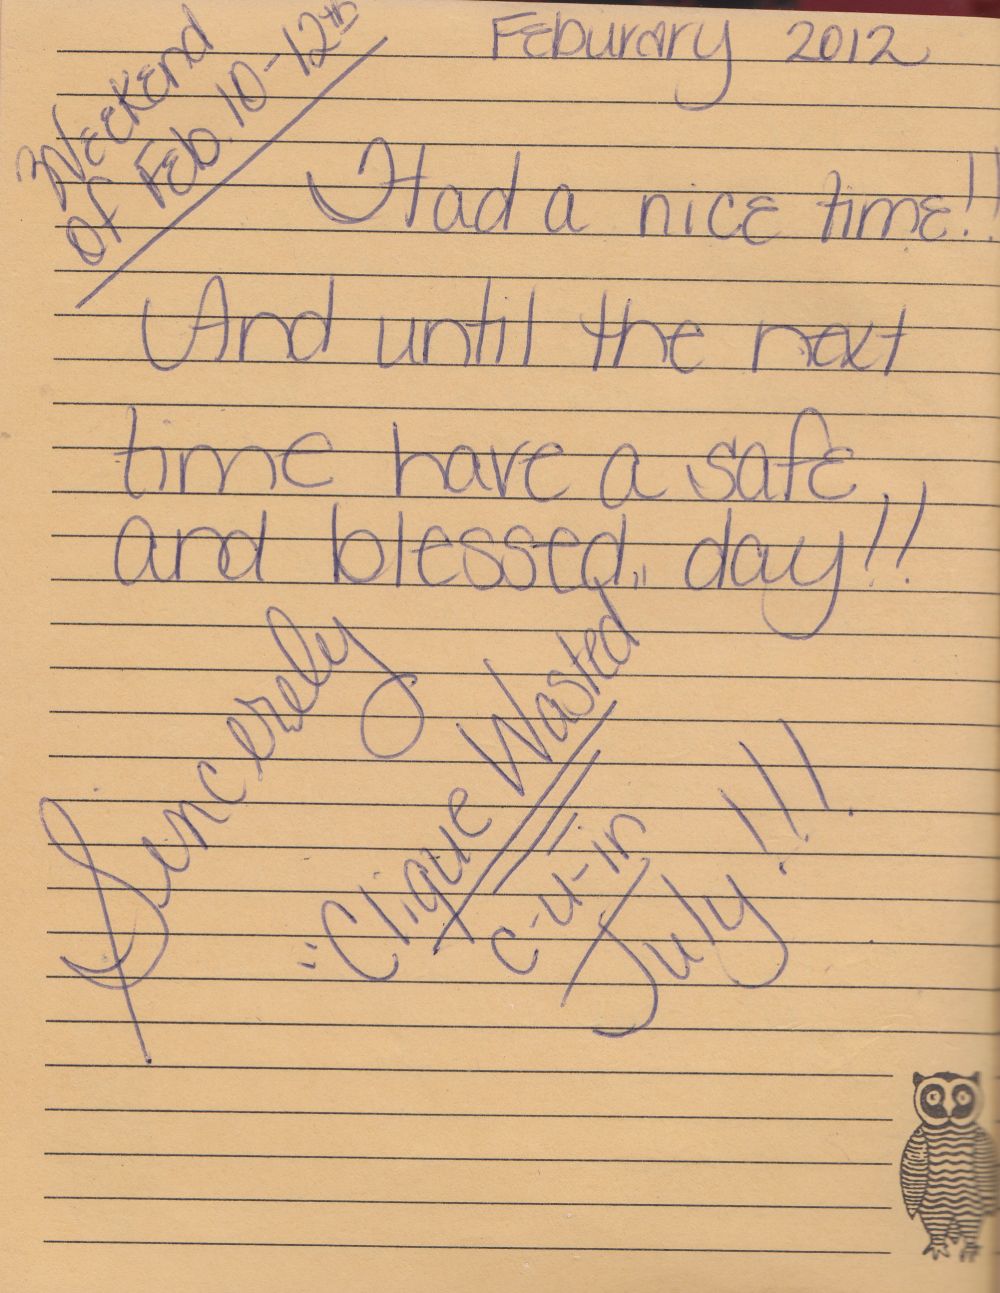 Feburary 2012
Weekend
of Feb. 10-12th
Had a nice time!!
And until the next
time have a safe
and blessed,, day!!
Sincerely
"Clique Wasted
c-u-in
July!!!